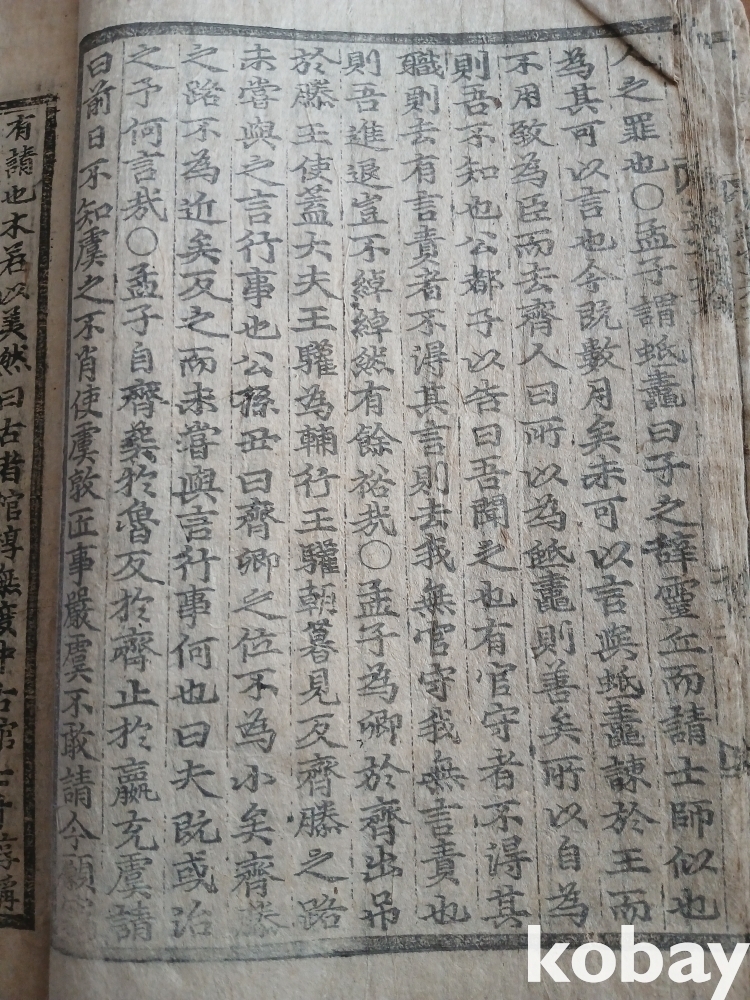 人之罪也○孟子謂蚳鼃曰子之辭靈丘而請士師似也
為其可以言也今既數月矣未可以言與蚳鼃諫於王而
不用致為臣而去齊人曰所以為蚳鼃則善矣所以自為
則吾不知也公都子以告曰吾聞之也有官守者不得其
職則去有言責者不得其言則去我無官守我無言責也
則吾進退豈不綽綽然有餘裕哉○孟子為卿於齊出吊
於滕王使蓋大夫王驩為輔行王驩朝暮見反齊滕之路
未嘗與之言行事也公孫丑曰齊卿之位不為小矣齊滕
之路不為近矣反之而未嘗與言行事何也曰夫既或治
之予何言哉○孟子自齊葬於魯反於齊止於嬴充虞請
曰前日不知虞之不肖使虞敦匠事嚴虞不敢請今願
有請也木若以美然曰古者棺椁無度中古棺七寸椁稱
kobay